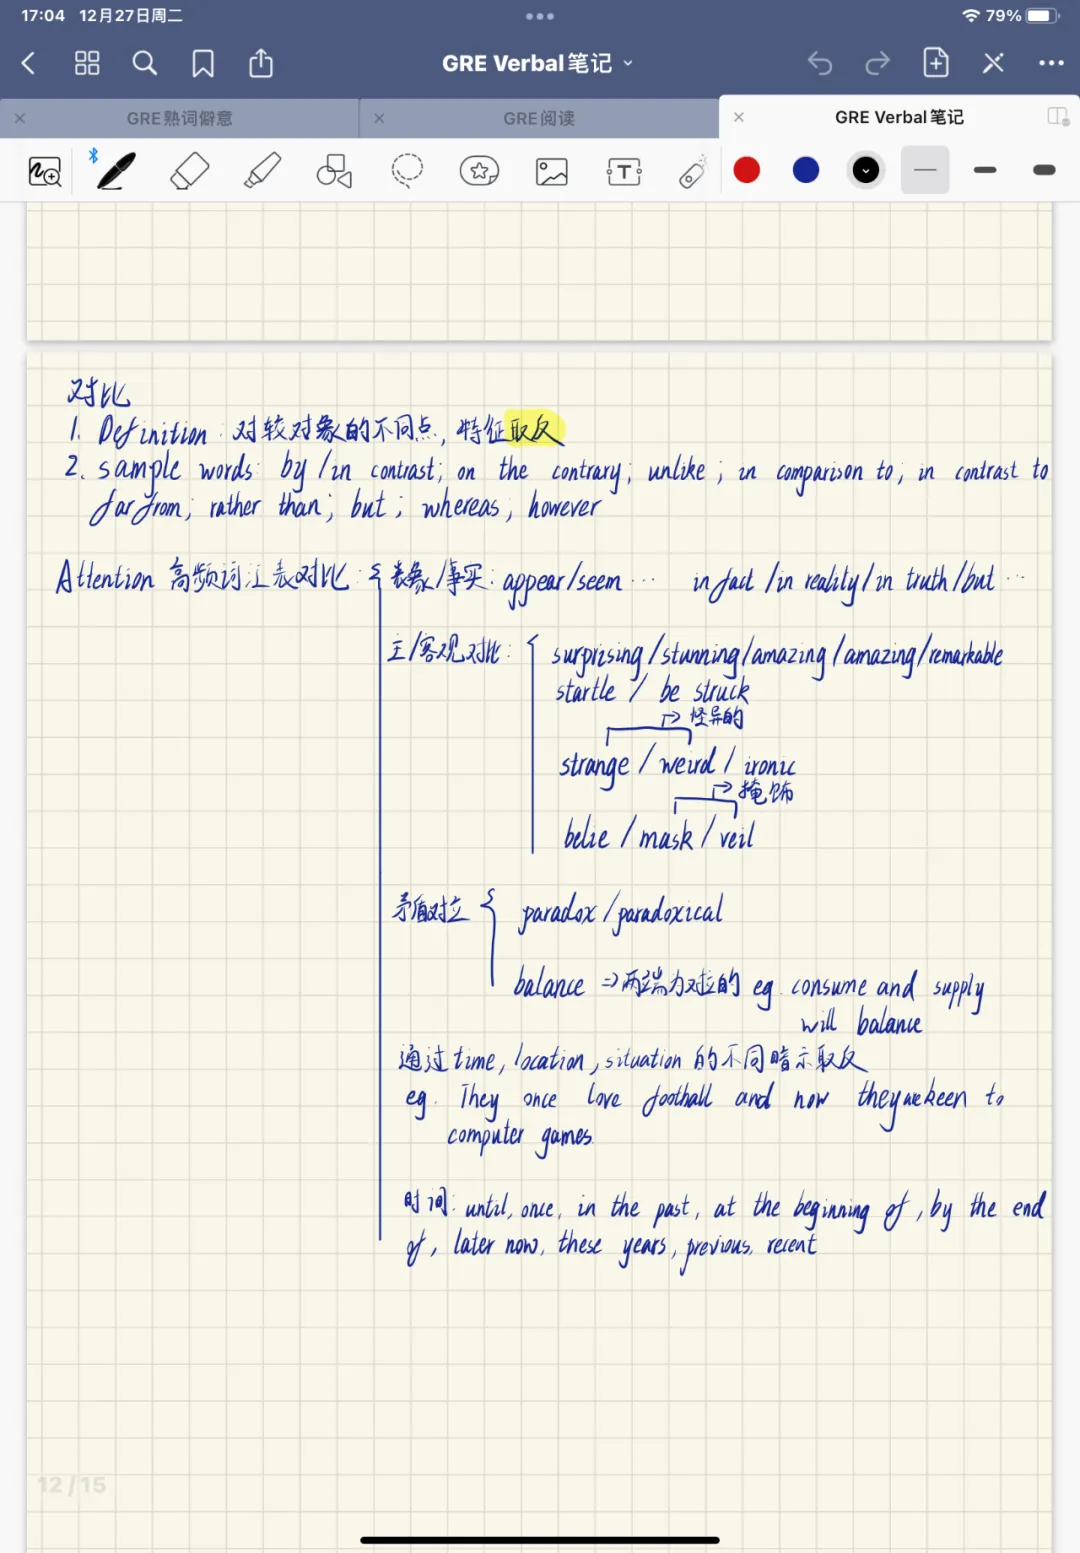 17:04 12月27日周二
79%
GRE Verbal笔记
GRE熟词僻意
GRE阅读
GRE Verbal笔记
对比
1. Definition: 对较对象的不同点, 特征取反
2. sample words: by/in contrast; on the contrary; unlike; in comparison to; in contrast to
far from; rather than; but; whereas; however
Attention 高频词汇表对比: 表象/事实: appear/seem ... in fact/in reality/in truth/but ...
主/客观对比: surprising/stunning/amazing/amazing/remarkable
startle / be struck
怪异的
strange / weird / ironic
掩饰
belie / mask / veil
矛盾对立 paradox/paradoxical
balance => 两端为对立的 eg. consume and supply
will balance
通过time, location, situation 的不同暗示取反
eg. They once love football and now they are keen to
computer games.
时间: until, once, in the past, at the beginning of, by the end
of, later now, these years, previous, recent
12/15